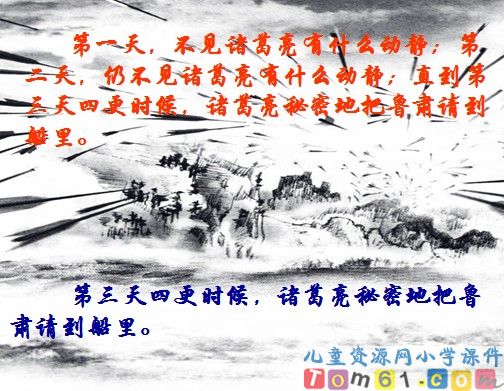 第一天，不见诸葛亮有什么动静；第
二天，仍不见诸葛亮有什么动静；直到第
三天四更时候，诸葛亮秘密地把鲁肃请到
船里。
第三天四更时候，诸葛亮秘密地把鲁
肃请到船里。
儿童资源网小学课件
Tom61.com